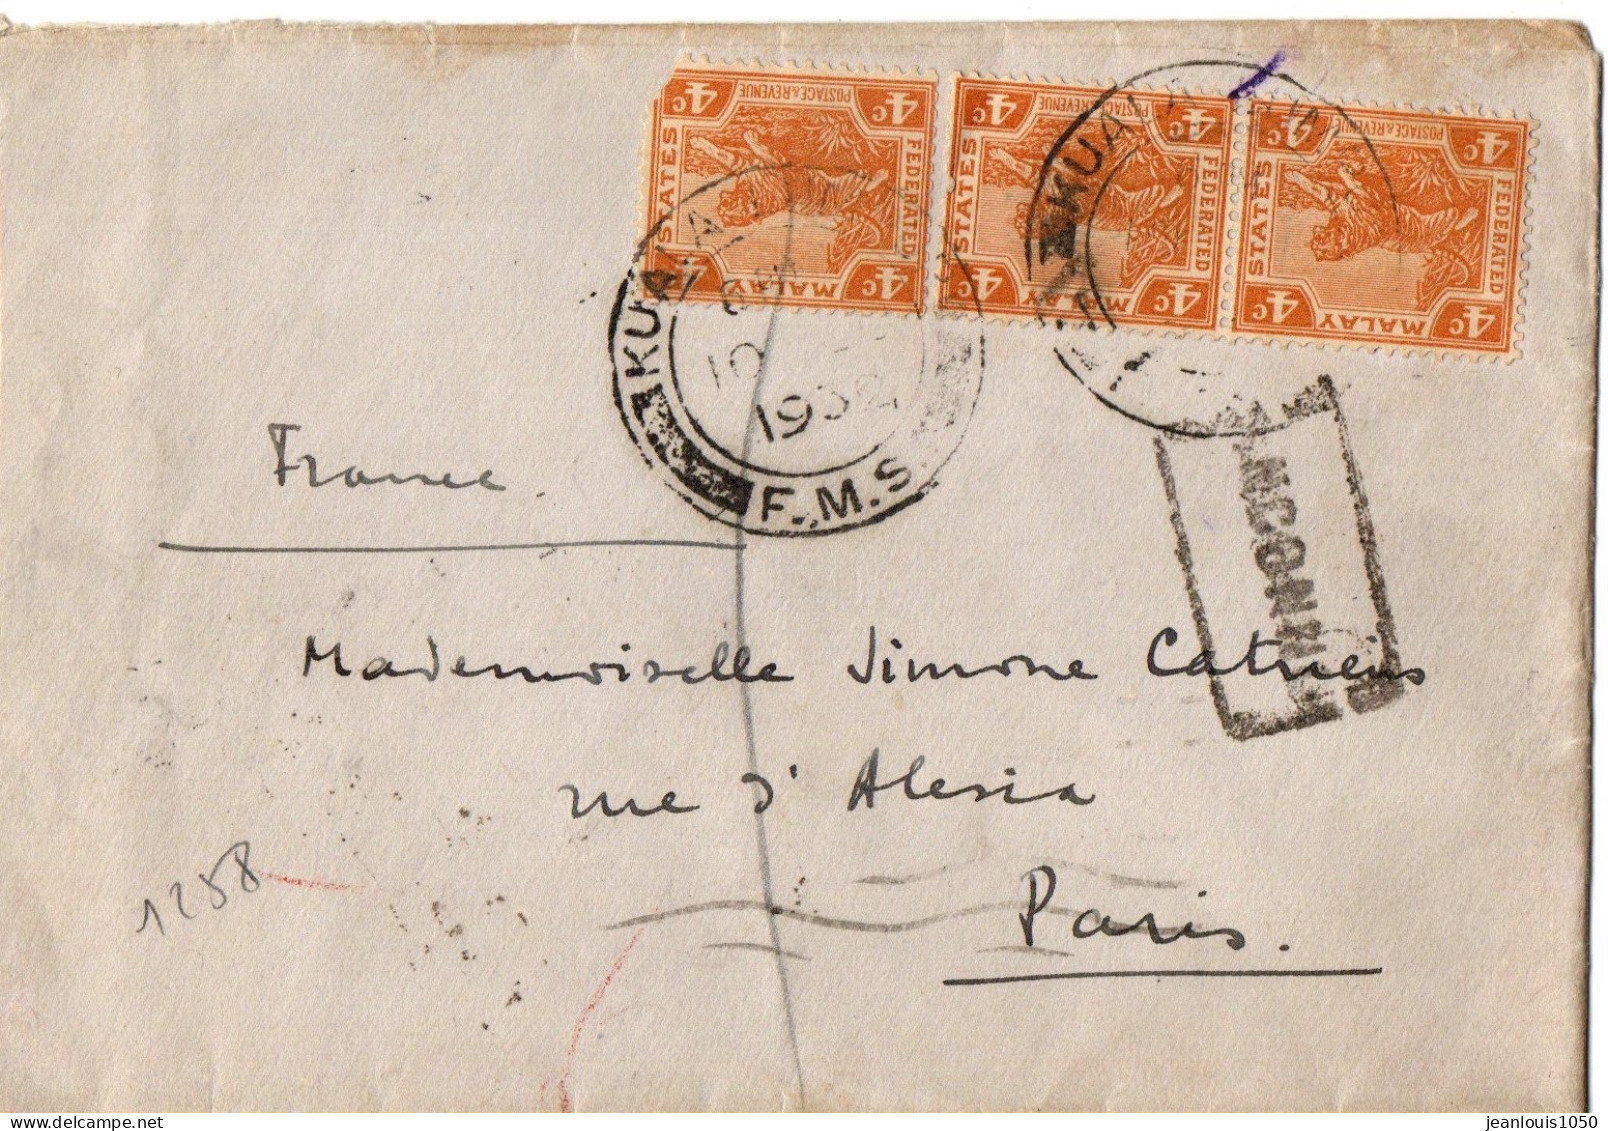 4c POSTAGE & REVENUE 4c
FEDERATED STATES
4c MALAY 4c
4c POSTAGE & REVENUE 4c
FEDERATED STATES
4c MALAY 4c
4c POSTAGE & REVENUE 4c
FEDERATED STATES
4c MALAY 4c
KUALA
1932
F.M.S.
KUALA
France
Mademoiselle Simone Catrieux
rue d'Alesia
Paris.
1258
jeanlouis1050